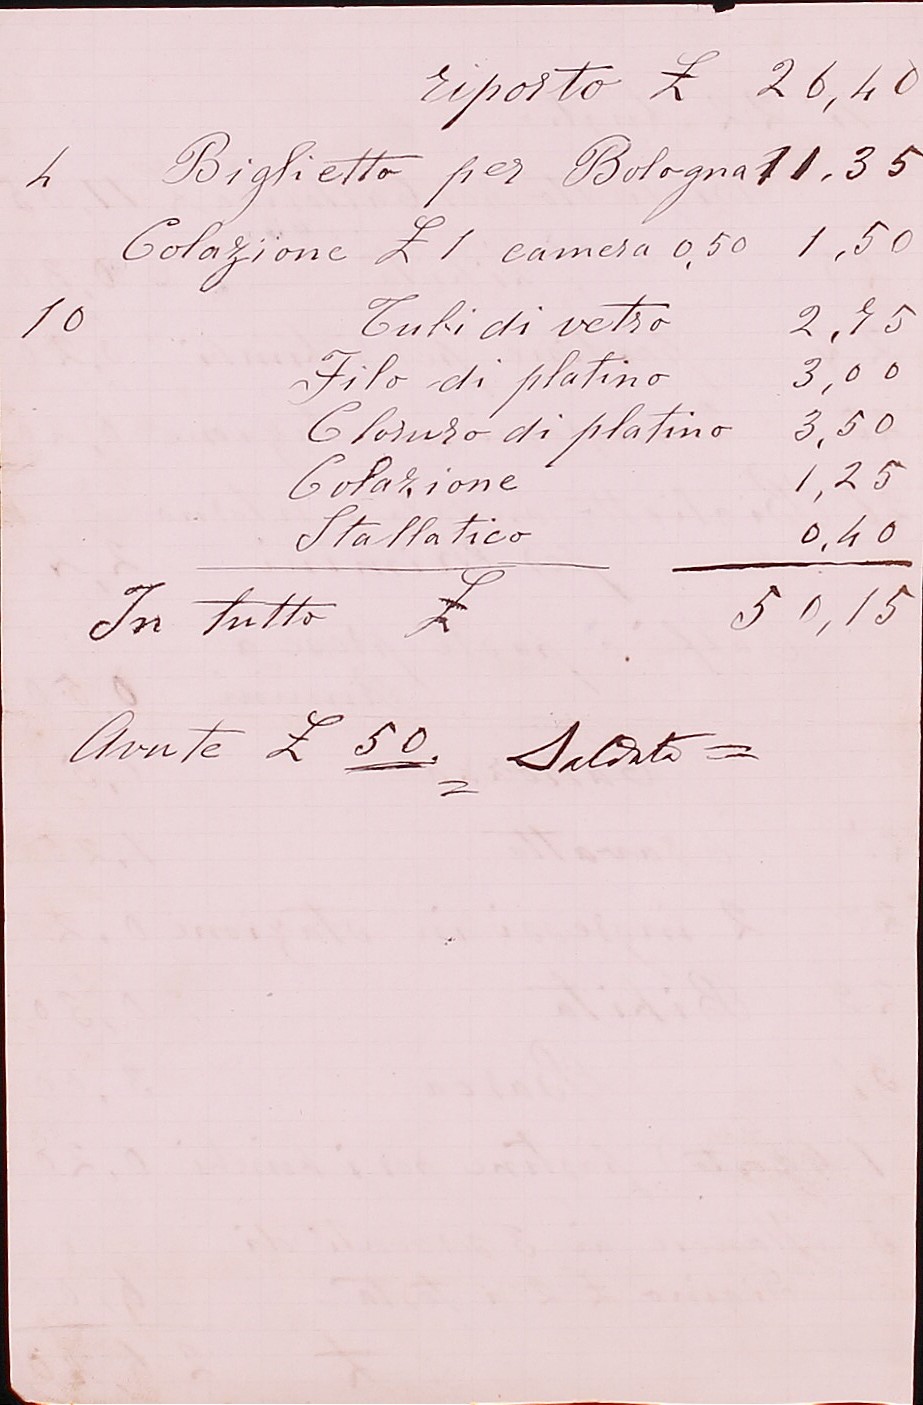 riporto £ 26,40
4 Biglietto per Bologna 11.35
Colazione £ 1 camera 0,50 1,50
10 Tubi di vetro 2,75
Filo di platino 3,00
Cloruro di platino 3,50
Colazione 1,25
Stallatico 0,40
In tutto £ 50,15
Avute £ 50. Saldato =